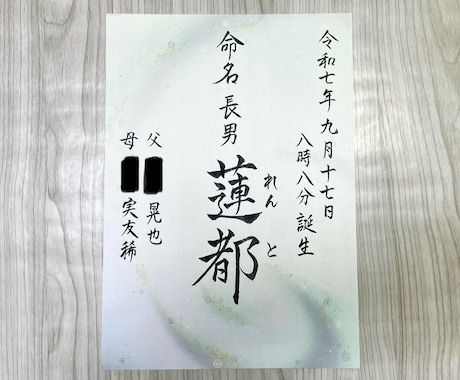 令和七年九月十七日
八時八分誕生
命名 長男
蓮都
れんと
父 晃也
母 実友稀